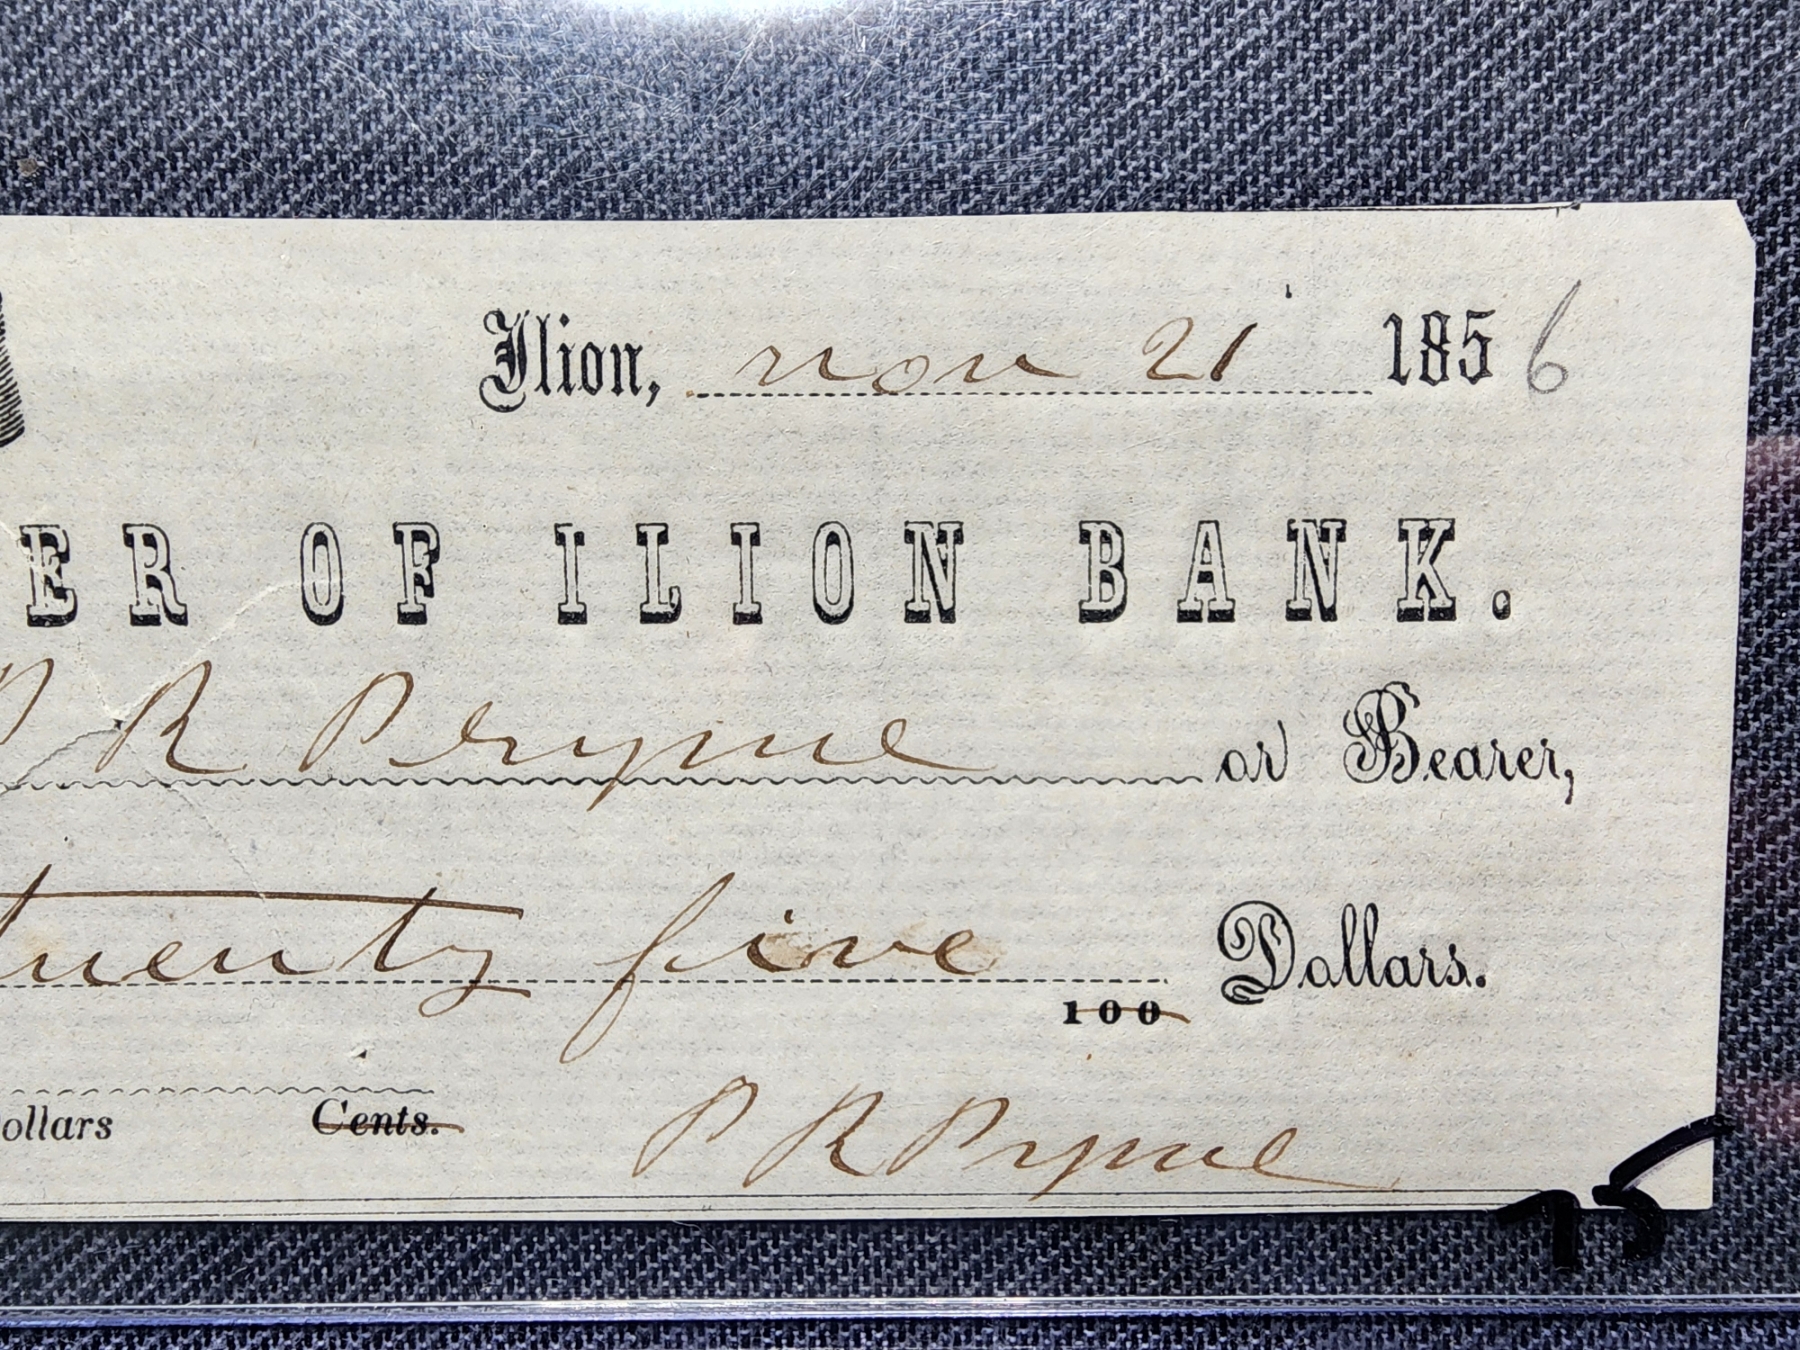 Ilion, nov 21 1856
ER OF ILION BANK.
P R Pryne or Bearer,
twenty five Dollars.
100
ollars Cents.
P R Pryne
75